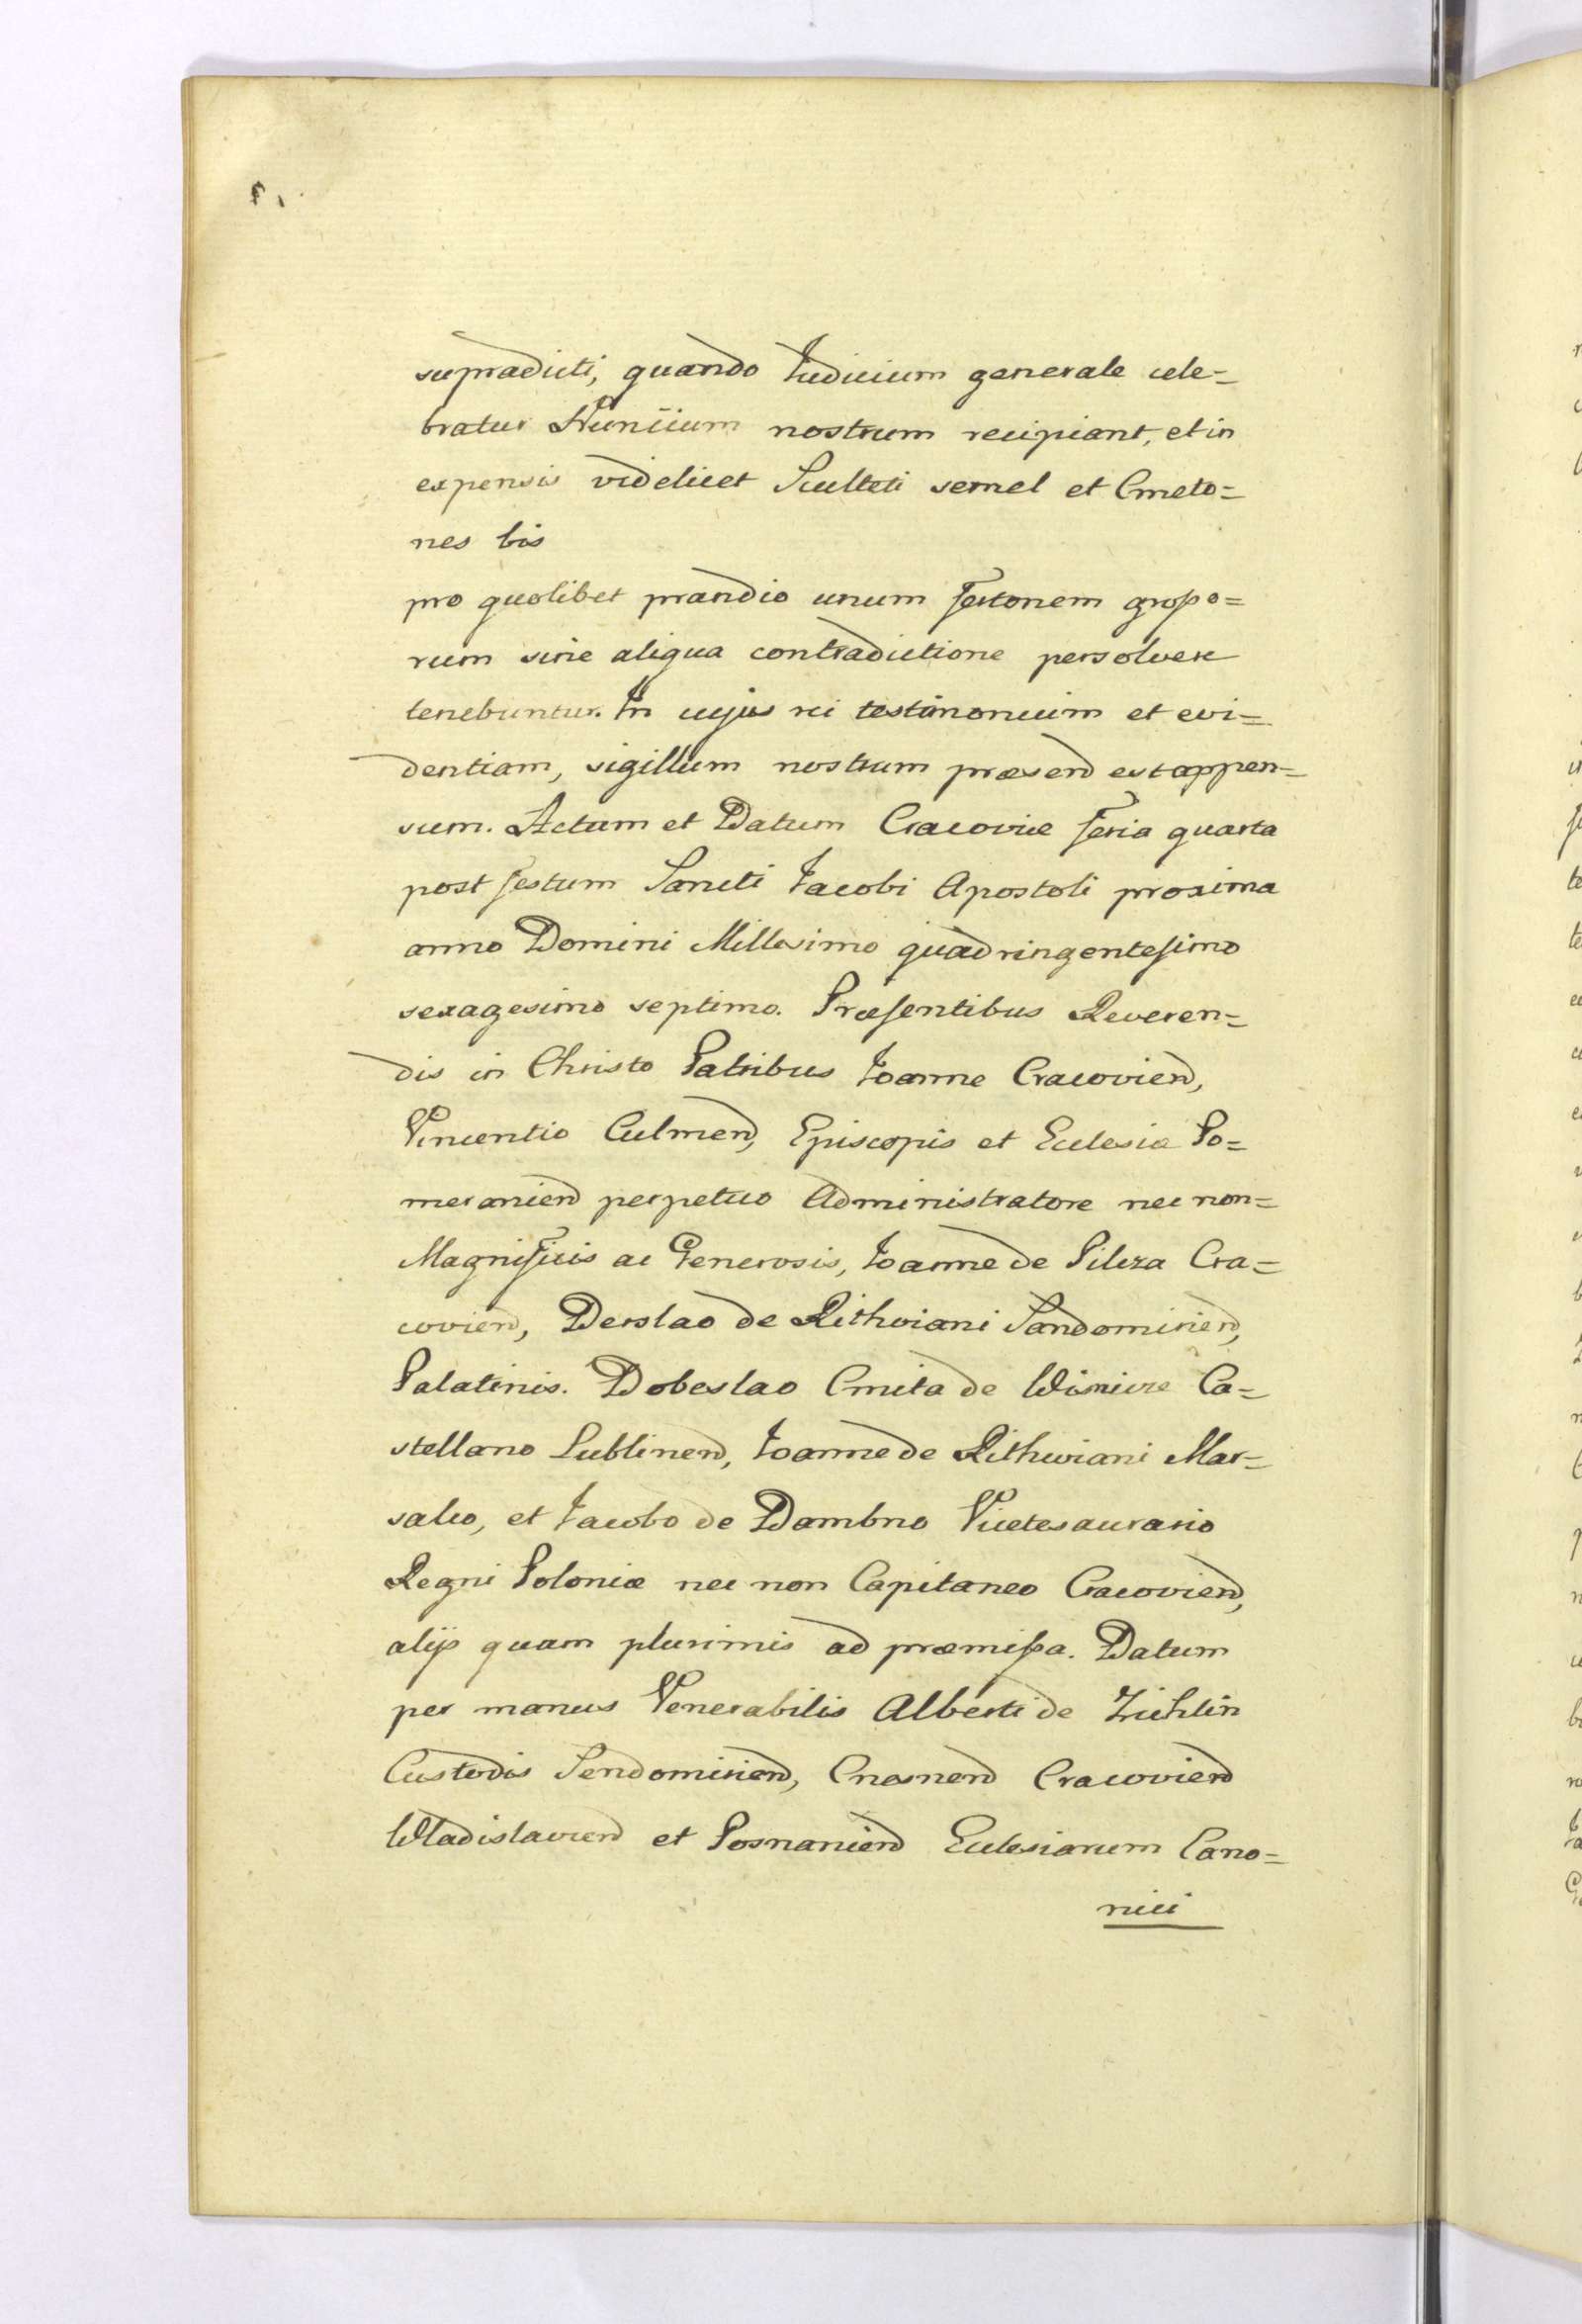 supradicti, quando Iudicium generale cele=
bratur Nuncium nostrum recipiant, et in
expensis videlicet Sculteti semel et Cmeto=
nes bis
pro quolibet prandio unum fertonem grosso=
rum sine aliqua contradictione persolvere
tenebuntur. In cujus rei testimonium et evi=
dentiam, sigillum nostrum præsend est appen=
sum. Actum et Datum Cracoviæ feria quarta
post festum Sancti Iacobi Apostoli proxima
anno Domini Millesimo quadringentesimo
sexagesimo septimo. Præsentibus Reveren=
dis in Christo Patribus Ioanne Cracoviend,
Vincentio Culmend, Episcopis et Eclesia Po=
meraniend perpetuo Administratore nec non=
Magnificis ac Generosis, Ioanne de Pilcza Cra=
coviend, Derslao de Rithwiani Sandomiriend,
Palatinis. Dobeslao Cmita de Wisnicze Ca=
stellano Lublinend, Ioanne de Rithwiani Mar=
salco, et Iacobo de Dambno Vicetesaurario
Regni Poloniæ nec non Capitaneo Cracoviend,
alijs quam plurimis ad præmissa. Datum
per manus Venerabilis Alberti de Zichlin
Custodis Sendomiriend, Cnesnend Cracoviend
Wladislaviend et Posnaniend Eclesiarum Cano=
nici